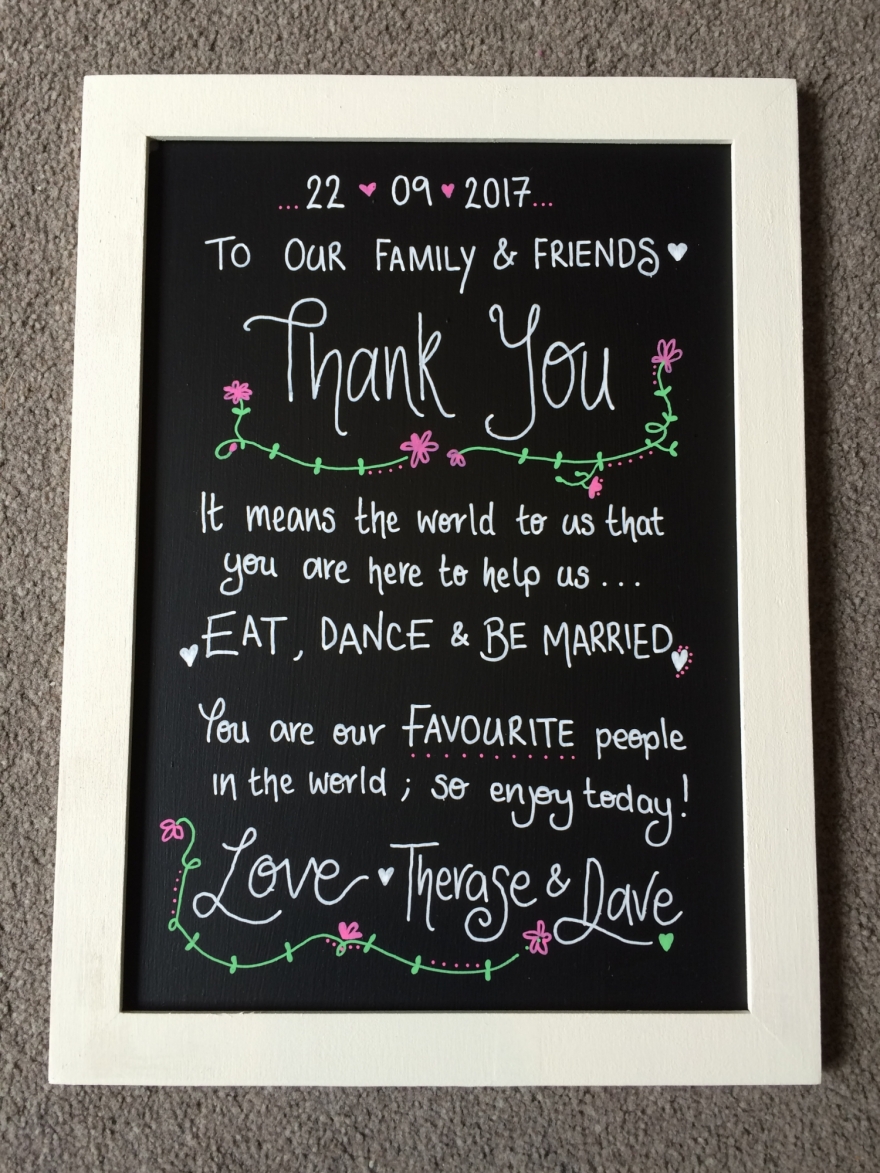 ...22 ♥ 09 ♥ 2017...
TO OUR FAMILY & FRIENDS ♥
Thank You
It means the world to us that
you are here to help us ...
♥ EAT, DANCE & BE MARRIED ♥
You are our FAVOURITE people
in the world ; so enjoy today!
Love ♥ Therase & Dave